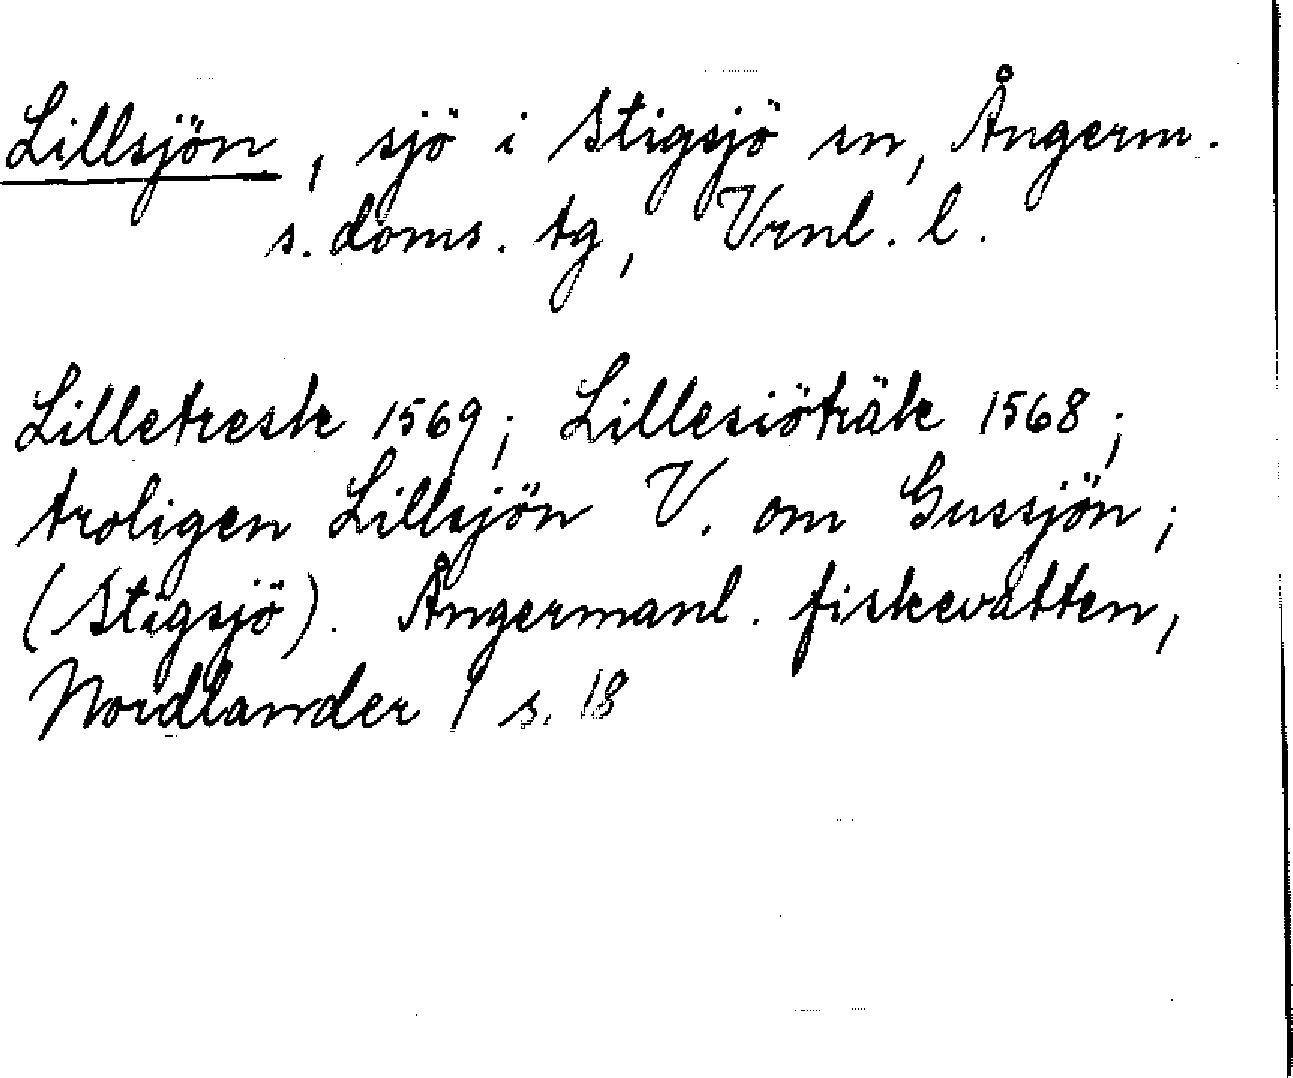 Lillsjön, sjö i Stigsjö sn, Ångerm.
s. doms. tg, Vrnl. l.
Lilletresk 1569; Lillesiöträk 1568;
troligen Lillsjön V. om Gussjön;
(Stigsjö). Ångermanl. fiskevatten,
Nordlander / s. 18